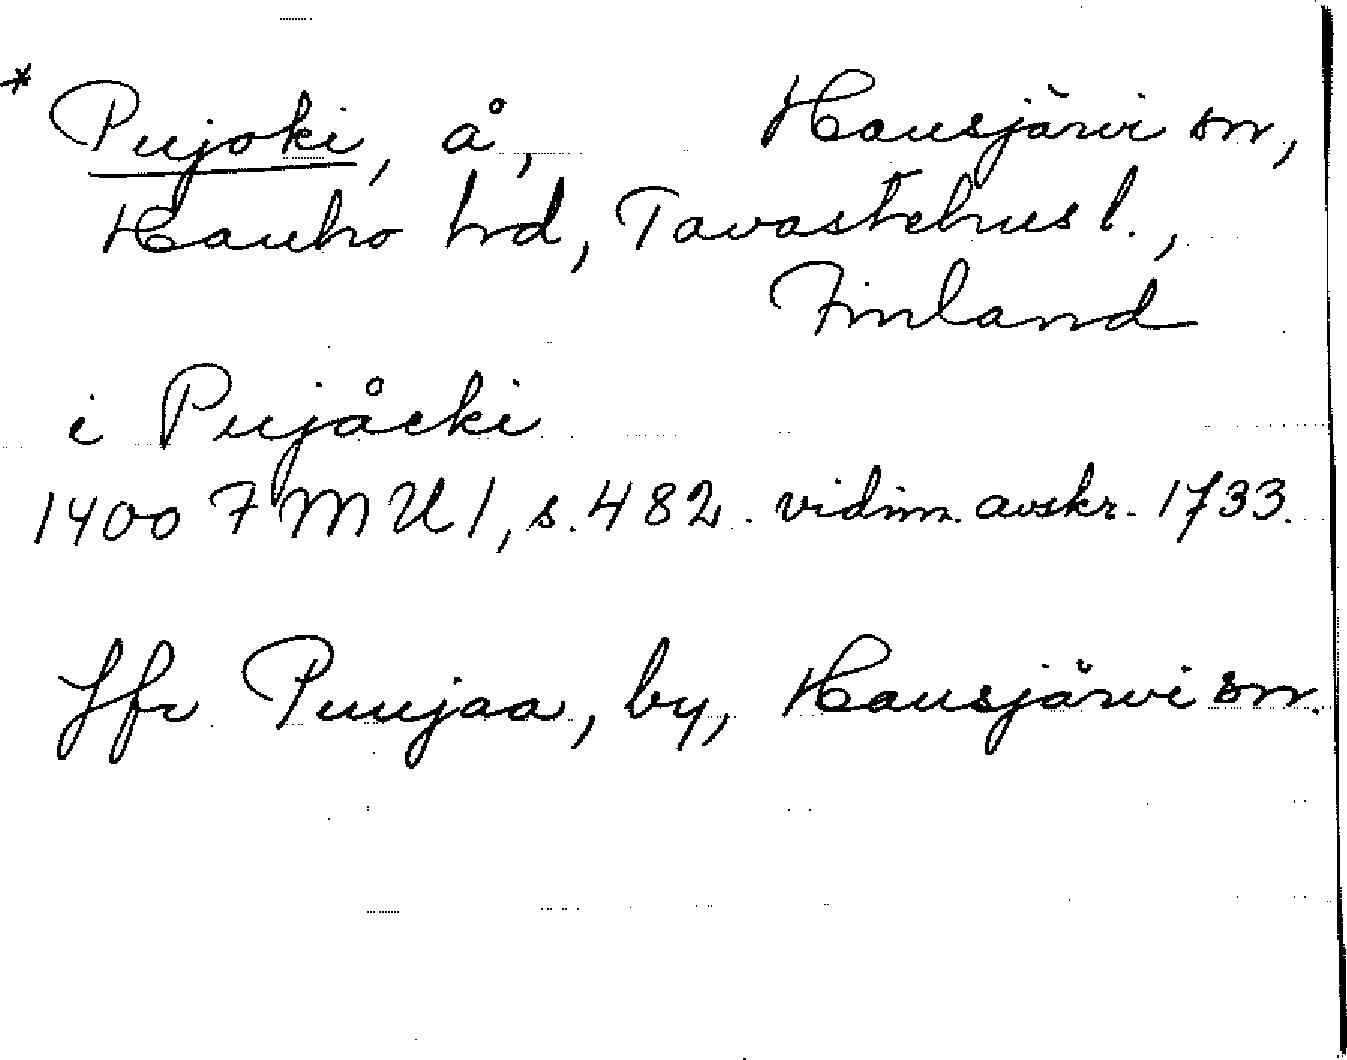 * Pujoki, å, Hausjärvi sn,
Hauho hd, Tavastehus l.,
Finland
i Pujåcki
1400 FMU 1, s. 482. vidim. avskr. 1733.
Jfr Puujaa, by, Hausjärvi sn.